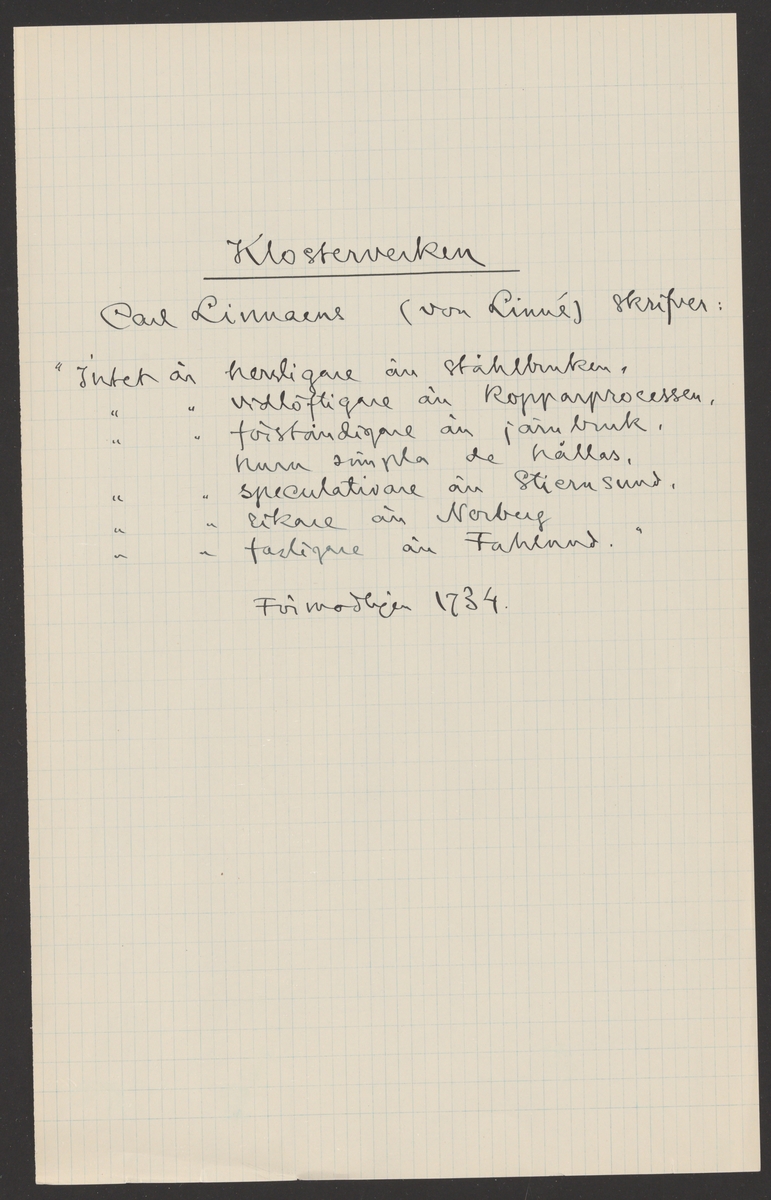 Klosterverken
Carl Linnaeus (von Linné) skrifver:
"Intet är hersligare än ståhlbruken.
" " vidlöftigare än Kopparprocessen,
" " förståndigare än järnbruk,
huru simpla de hållas,
" " speculativare än Stiernsund,
" " rikare än Norberg
" " farligare än Fahlund."
Förmodligen 1734.